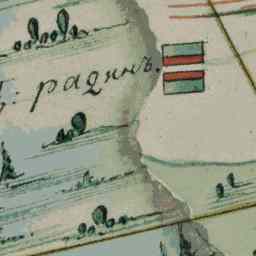 : радинъ.